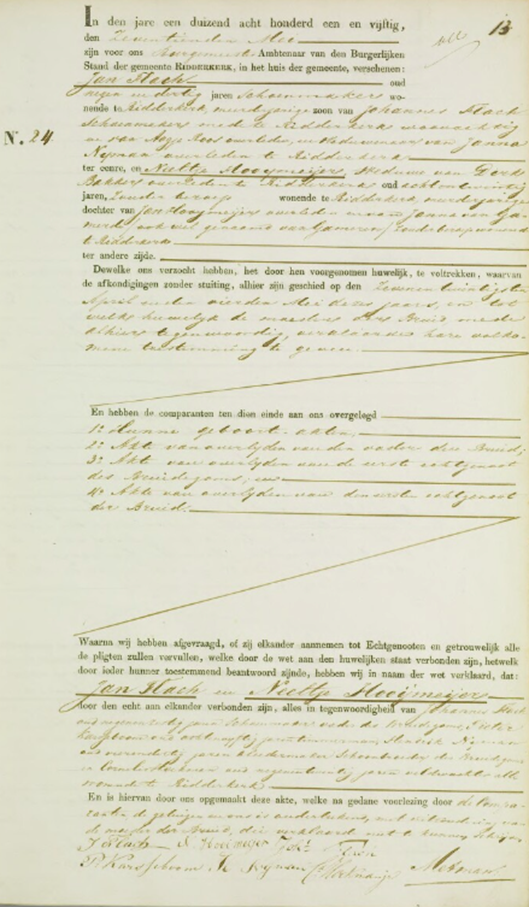 13
In den jare een duizend acht honderd een en vijftig,
den Zeventienden Mei
zijn voor ons Burgemeester Ambtenaar van den Burgerlijken
Stand der gemeente RIDDERKERK, in het huis der gemeente, verschenen:
Jan Flach oud
negen en dertig jaren Schoenmaker wo-
nende te Ridderkerk, meerderjarige zoon van Johannes Flach
Schoenmaker mede te Ridderkerk woonachtig
en van Roos overleden, en Weduwenaar van Janna
Nijman overleden te Ridderkerk
N.º 24.
ter eenre, en Neeltje Hooijmeijer Weduwe van Dirk
Bakker overleden te Ridderkerk oud acht en twintig
jaren, zonder beroep wonende te Ridderkerk, meerderjarige
dochter van Jan Hooijmeijer overleden en van Janna van
te Ridderkerk
ter andere zijde.
Dewelke ons verzocht hebben, het door hen voorgenomen huwelijk, te voltrekken, waarvan
de afkondigingen zonder stuiting, alhier zijn geschied op den Zeven en twintigsten
April en den vierden Mei dezes jaars, en tot
welk huwelijk de moeder der Bruid mede
alhier tegenwoordig verklaarde hare volko-
mene toestemming te geven.
En hebben de comparanten ten dien einde aan ons overgelegd
1º Hunne geboorte-akten,
2º Akte van overlijden van den vader der Bruid;
3º Akte van overlijden van de eerste echtgenoot
des Bruidegoms; en
4º Akte van overlijden van den eersten echtgenoot
der Bruid.
Waarna wij hebben afgevraagd, of zij elkander aannemen tot Echtgenooten en getrouwelijk alle
de pligten zullen vervullen, welke door de wet aan den huwelijken staat verbonden zijn, hetwelk
door ieder hunner toestemmend beantwoord zijnde, hebben wij in naam der wet verklaard, dat:
Jan Flach en Neeltje Hooijmeijer
door den echt aan elkander verbonden zijn, alles in tegenwoordigheid van Johannes Flach
jaren Schoenmaker vader des Bruidegoms, Pieter
Nijman
jaren kleedermaker Schoonbroeder des Bruidegoms
en negen en veertig jaren veldwachter alle
wonende te Ridderkerk
En is hiervan door ons opgemaakt deze akte, welke na gedane voorlezing door de Compa-
ranten de getuigen en ons is onderteekend, met uitzondering van
de moeder der Bruid, die verklaarde niet te kunnen schrijven
J Flach
P. Karsseboom Nijman